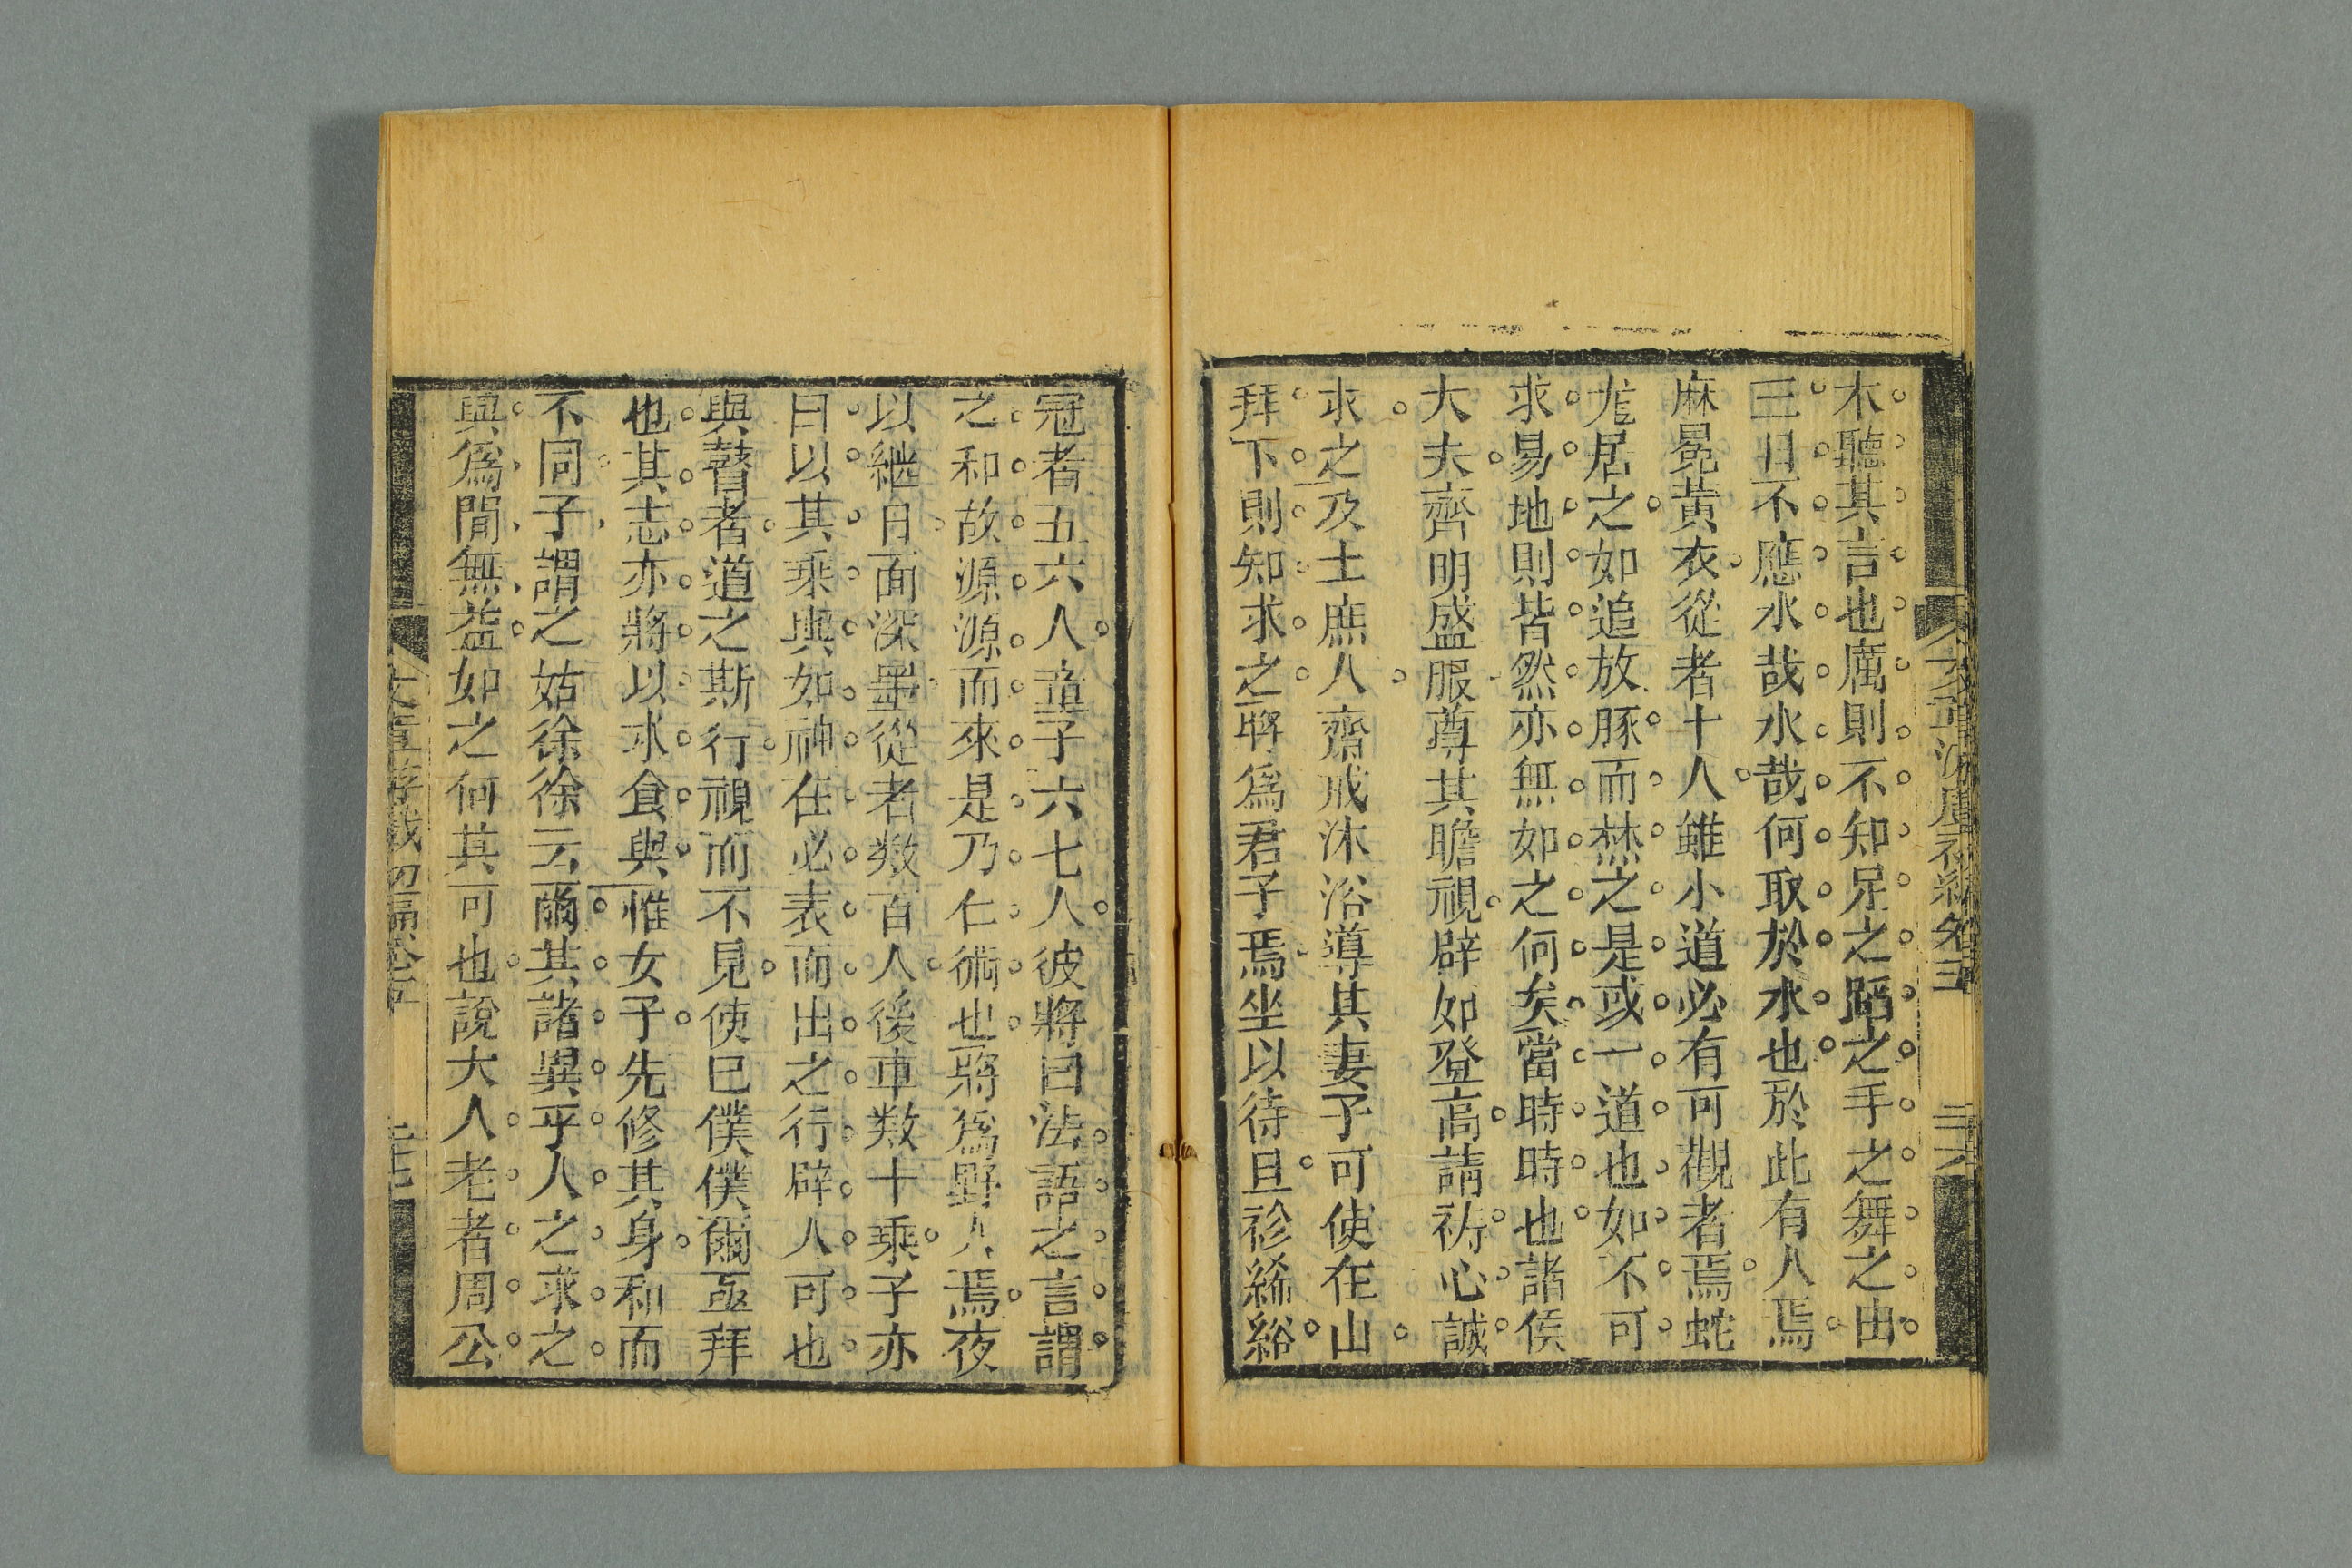 木聽其言也厲則不知足之蹈之手之舞之由
三日不應水哉水哉何取於水也於此有人焉
麻冕黃衣從者十人雖小道必有可觀者焉蛇
龍居之如追放豚而焚之是或一道也如不可
求易地則皆然亦無如之何矣當時時也諸侯
大夫齊明盛服尊其瞻視辟如登高請祈心誠
求之及士庶人齋戒沐浴導其妻子可使在山
拜下則知求之將為君子焉坐以待旦袗絺綌
冠者五六人童子六七人彼將曰法語之言謂
之和故源源而來是乃仁術也將為野人焉夜
以繼日面深墨從者数百人後車数十乘子亦
曰以其乘輿如神在必表而出之行辟人可也
與瞽者道之斯行視而不見使已僕僕爾亟拜
也其志亦將以求食與惟女子先修其身和而
不同子謂之姑徐徐云爾其諸異乎人之求之
與為閒無益如之何其可也說大人老者周公